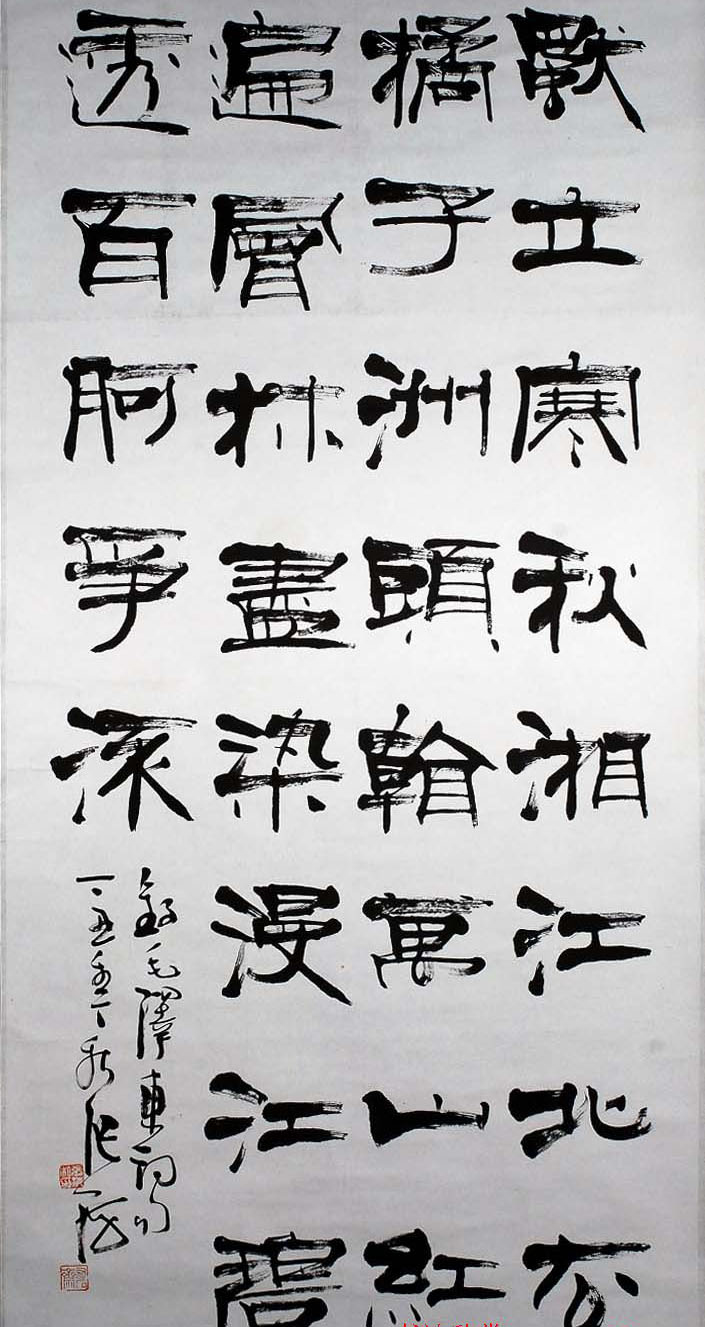 獨立寒秋湘江北去
橘子洲頭看萬山紅
遍層林盡染漫江碧
透百舸爭流
錄毛澤東詞句
張海